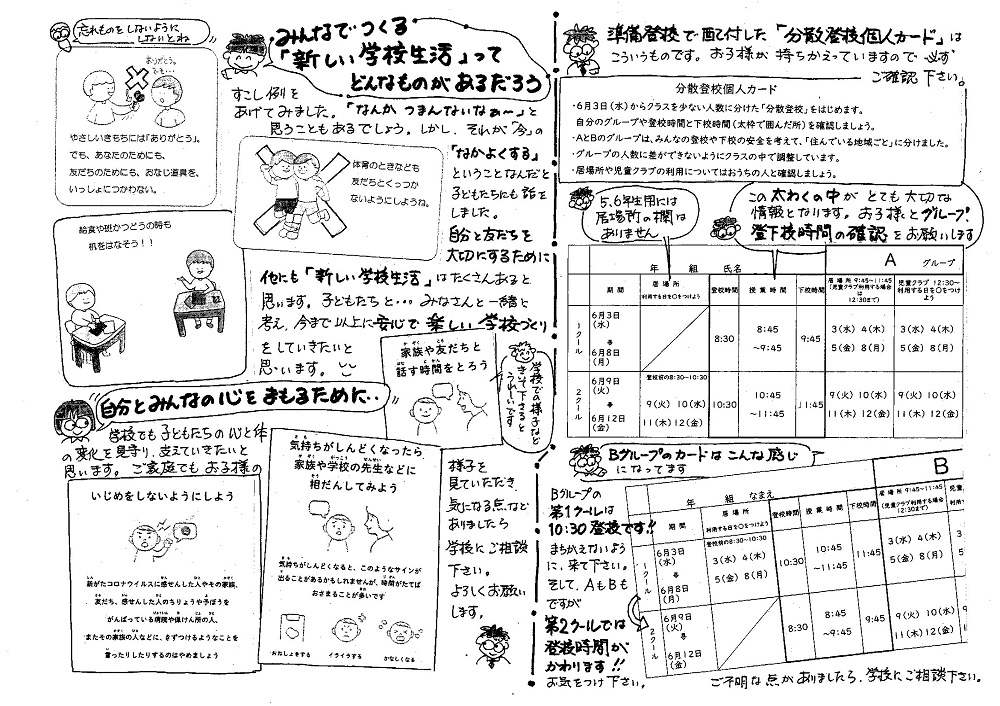 忘れものをしないように
しないとね
ありがとう。
でも…
やさしいきもちには「ありがとう」。
でも、あなたのためにも、
友だちのためにも、おなじ道具を、
いっしょにつかわない。
給食や班かつどうの時も
机をはなそう！！
みんなでつくる
「新しい学校生活」って
どんなものがあるだろう
すこし例を
あげてみました。「なんか つまんないなぁ～」と
思うこともあるでしょう。しかし、それが「今」の
「なかよくする」
ということなんだと
子どもたちにも話を
しました。
自分と友だちを
大切にするために
体育のときなども
友だちとくっつか
ないようにしようね。
他にも「新しい学校生活」はたくさんあると
思います。子どもたちと…みなさんと一緒に
考え、今まで以上に安心で楽しい学校づくり
をしていきたいと
思います。
家族や友だちと
話す時間をとろう
学校での様子など
きいて下さると
うれしいです
自分とみんなの心をまもるために‥
学校でも子どもたちの心と体
の変化を見守り、支えていきたいと
思います。ご家庭でもお子様の
様子を
見ていただき、
気になる点など
ありましたら
学校にご相談
下さい。
よろしくお願い
します。
いじめをしないようにしよう
新がたコロナウイルスに感せんした人やその家族、
友だち、感せんした人のちりょうや予ぼうを
がんばっている病院や保けん所の人、
またその家族の人などに、きずつけるようなことを
言ったりしたりするのはやめましょう
気持ちがしんどくなったら
家族や学校の先生などに
相だんしてみよう
気持ちがしんどくなると、このようなサインが
出ることがあるかもしれませんが、時間がたてば
おさまることが多いです
おねしょをする
イライラする
かなしくなる
準備登校で配付した「分散登校個人カード」は
こういうものです。お子様が持ちかえっていますので必ず
ご確認下さい。
分散登校個人カード
・6月3日（水）からクラスを少ない人数に分けた「分散登校」をはじめます。
自分のグループや登校時間と下校時間（太枠で囲んだ所）を確認しましょう。
・AとBのグループは、みんなの登校や下校の安全を考えて、「住んでいる地域ごと」に分けました。
・グループの人数に差ができないようにクラスの中で調整しています。
・居場所や児童クラブの利用についてはおうちの人と確認しましょう。
5、6年生用には
居場所の欄は
ありません
この太わくの中がとても大切な
情報となります。お子様とグループ！
登下校時間の確認をお願いします
年 組 氏名 A グループ
期間 居場所 利用する日を○をつけよう 登校時間 授業時間 下校時間 居場所 9:45～11:45 （児童クラブ利用する場合は12:30まで） 児童クラブ 12:30～ 利用する日を○をつけよう
1クール 6月3日（水） 6月8日（月） 8:30 8:45～9:45 9:45 3（水）4（木）5（金）8（月） 3（水）4（木）5（金）8（月）
2クール 6月9日（火） 6月12日（金） 登校前の8:30～10:30 9（火）10（水）11（木）12（金） 10:30 10:45～11:45 11:45 9（火）10（水）11（木）12（金） 9（火）10（水）11（木）12（金）
Bグループのカードはこんな感じ
になってます
Bグループの
第1クールは
10:30登校です!!
まちがえないよう
に、来て下さい。
そして、AもBも
ですが
第2クールでは
登校時間が
かわります!!
お気をつけ下さい。
B
年 組 なまえ
期間 居場所 利用する日を○をつけよう 登校時間 授業時間 下校時間 居場所 9:45～11:45 （児童クラブ利用する場合は12:30まで） 児童
利用
1クール 6月3日（水） 6月8日（月） 登校前の8:30～10:30 3（水）4（木）5（金）8（月） 10:30 10:45～11:45 11:45 3（水）4（木）5（金）8（月） 3 5
2クール 6月9日（火） 6月12日（金） 8:30 8:45～9:45 9:45 9（火）10（水）11（木）12（金）
ご不明な点がありましたら、学校にご相談下さい。